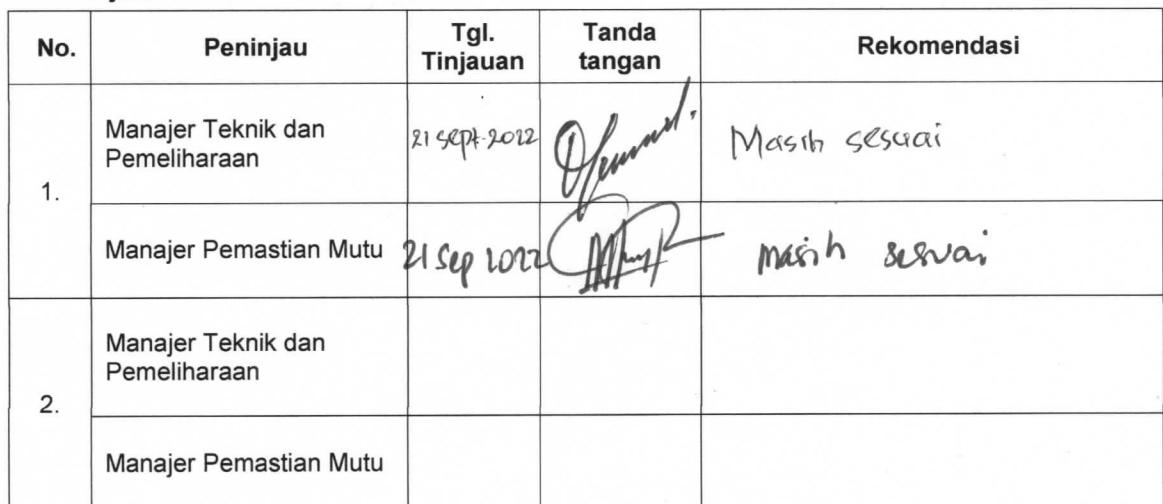 No. Peninjau Tgl. Tinjauan Tanda tangan Rekomendasi
1. Manajer Teknik dan Pemeliharaan 21 Sept-2022 Masih sesuai
Manajer Pemastian Mutu 21 Sep 2022 masih sesuai
2. Manajer Teknik dan Pemeliharaan
Manajer Pemastian Mutu